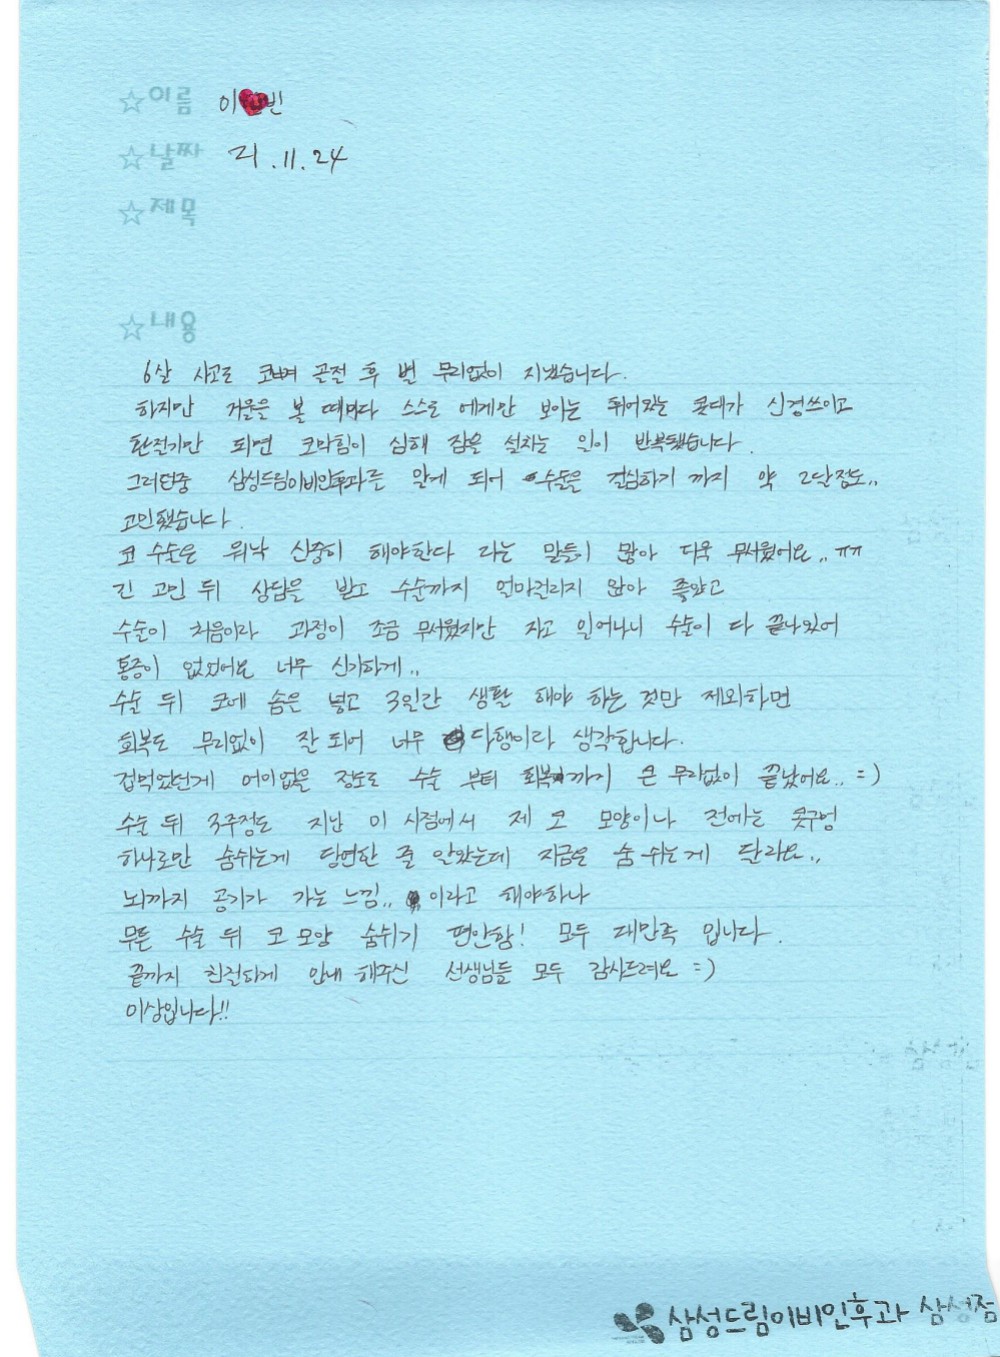 ☆이름 이 빈
☆날짜 21.11.24
☆제목
☆내용
6살 사고로 코뼈 골절 후 별 무리없이 지냈습니다.
하지만 거울을 볼 때마다 스스로 에게만 보이는 튀어있는 콧대가 신경쓰이고
환절기만 되면 코막힘이 심해 잠을 설치는 일이 반복됐습니다.
그러던중 삼성드림이비인후과를 알게 되어 수술을 결심하기 까지 약 2달정도..
고민했습니다.
코 수술은 워낙 신중히 해야한다 라는 말들이 많아 더욱 무서웠어요..ㅠㅠ
긴 고민 뒤 상담을 받고 수술까지 얼마걸리지 않아 좋았고
수술이 처음이라 과정이 조금 무서웠지만 자고 일어나니 수술이 다 끝나있어
통증이 없었어요 너무 신기하게..
수술 뒤 코에 솜은 넣고 3일간 생활 해야 하는 것만 제외하면
회복도 무리없이 잘 되어 너무 다행이라 생각합니다.
겁먹었던게 어이없을 정도로 수술 부터 회복까지 큰 무리없이 끝났어요.. =)
수술 뒤 3주정도 지난 이 시점에서 제 코 모양이나 전에는 콧구멍
하나로만 숨쉬는게 당연한 줄 알았는데 지금은 숨 쉬는게 달라요..
뇌까지 공기가 가는 느낌.. 이라고 해야하나
무튼 수술 뒤 코 모양 숨쉬기 편안함! 모두 대만족 입니다.
끝까지 친절하게 안내 해주신 선생님들 모두 감사드려요 =)
이상입니다!!
삼성드림이비인후과 삼성점